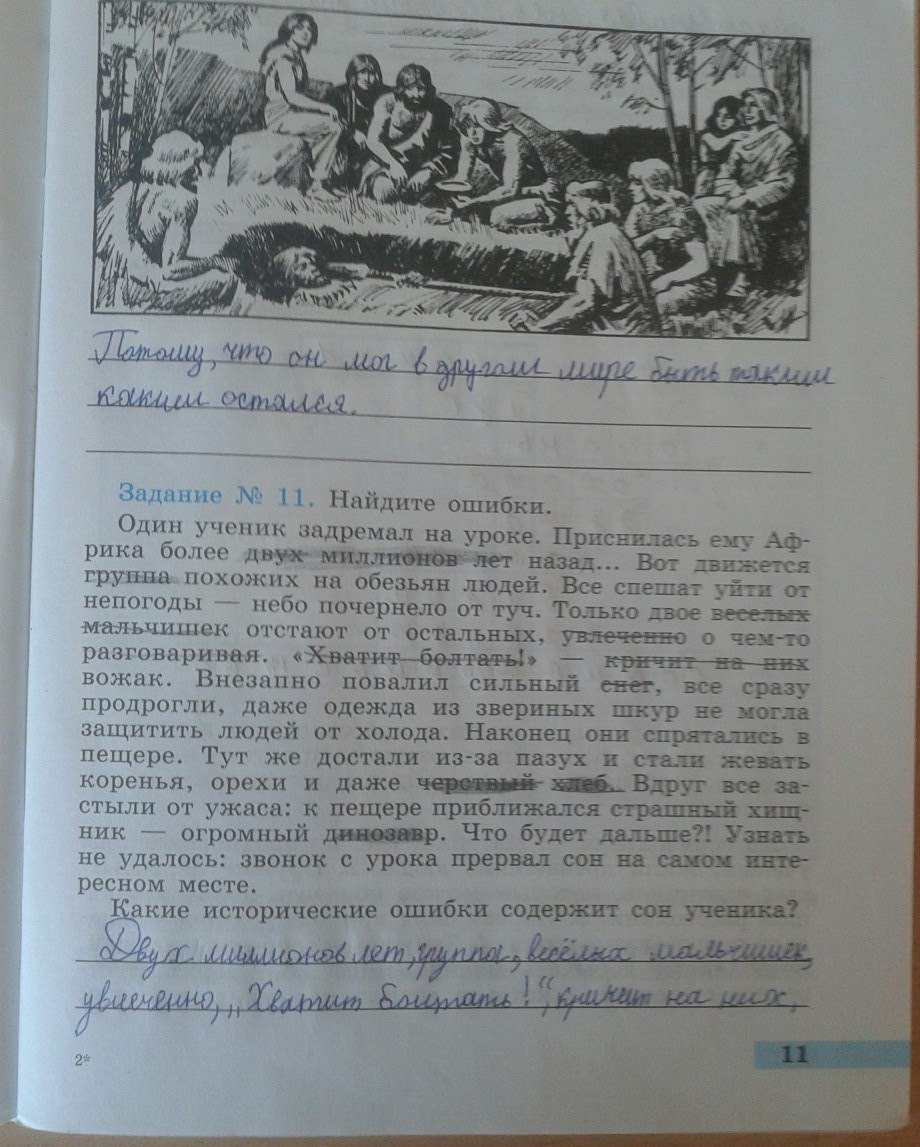 Потому, что он мог в другом мире быть таким
каким остался.
Задание № 11. Найдите ошибки.
Один ученик задремал на уроке. Приснилась ему Аф-
рика более двух миллионов лет назад... Вот движется
группа похожих на обезьян людей. Все спешат уйти от
непогоды — небо почернело от туч. Только двое веселых
мальчишек отстают от остальных, увлеченно о чем-то
разговаривая. «Хватит болтать!» — кричит на них
вожак. Внезапно повалил сильный снег, все сразу
продрогли, даже одежда из звериных шкур не могла
защитить людей от холода. Наконец они спрятались в
пещере. Тут же достали из-за пазух и стали жевать
коренья, орехи и даже черствый хлеб. Вдруг все за-
стыли от ужаса: к пещере приближался страшный хищ-
ник — огромный динозавр. Что будет дальше?! Узнать
не удалось: звонок с урока прервал сон на самом инте-
ресном месте.
Какие исторические ошибки содержит сон ученика?
Двух миллионов лет, группа, весёлых мальчишек,
увлеченно, „Хватит болтать!“, кричит на них,
2*
11